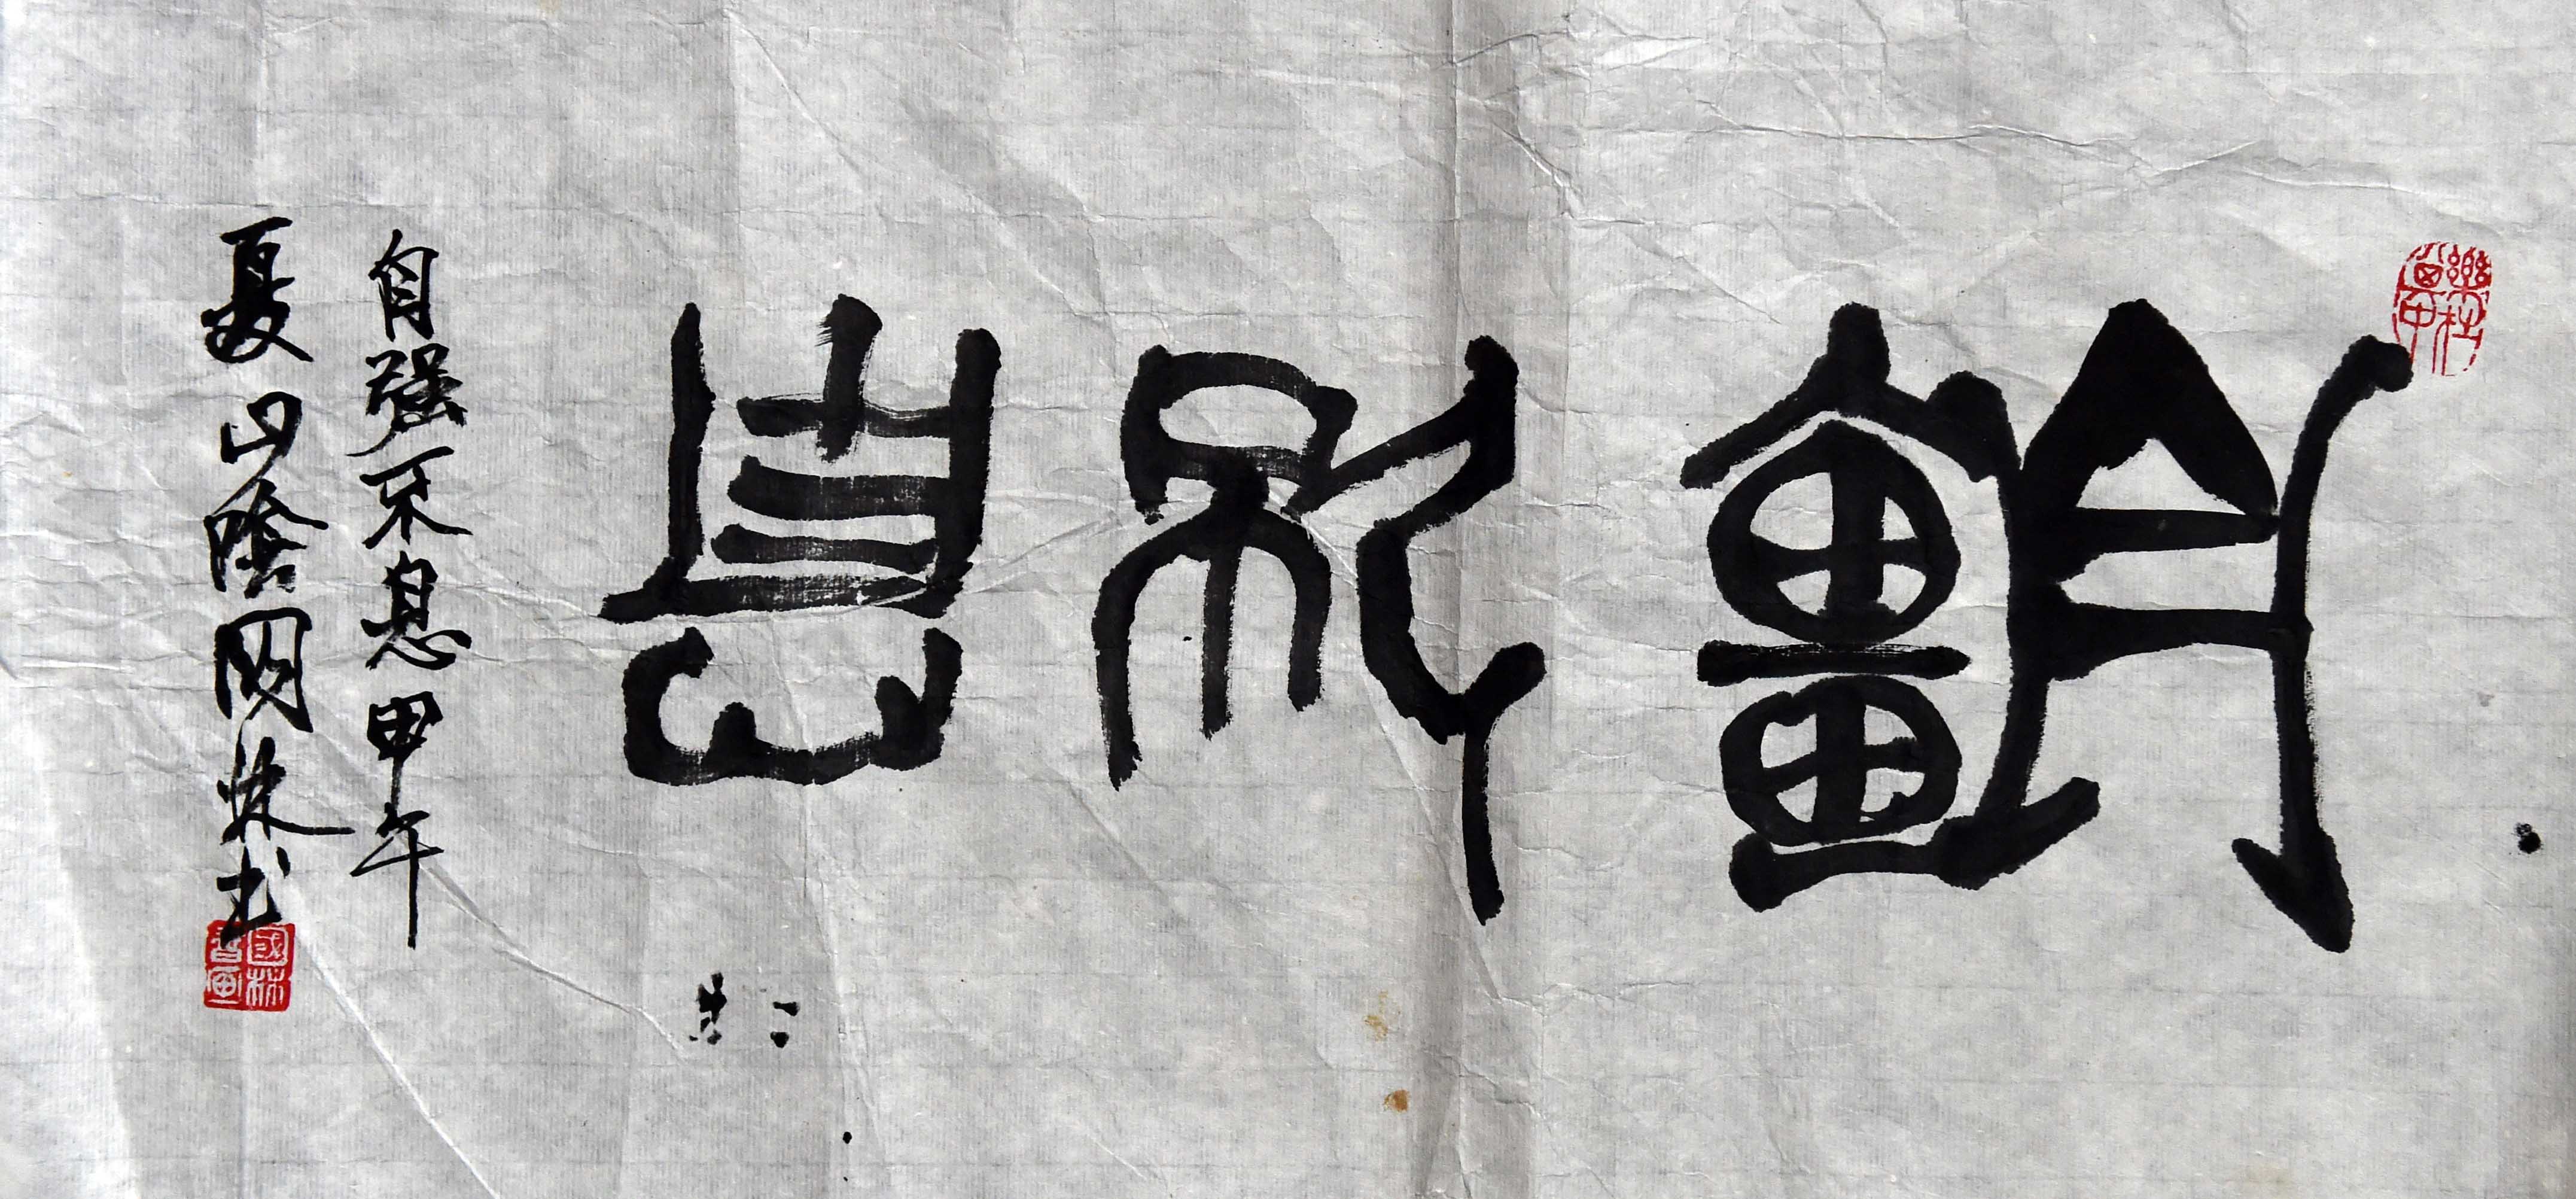 自彊不息
自强不息甲午
夏山陰國林书
國林書画